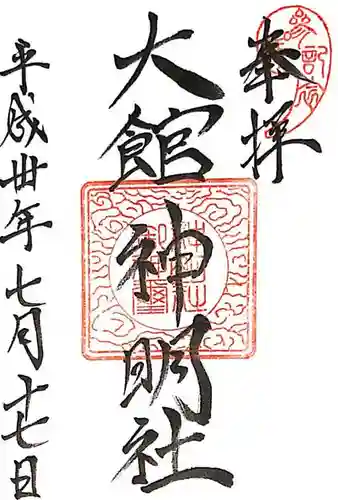 奉拝
大館神明社
平成卅年七月十七日